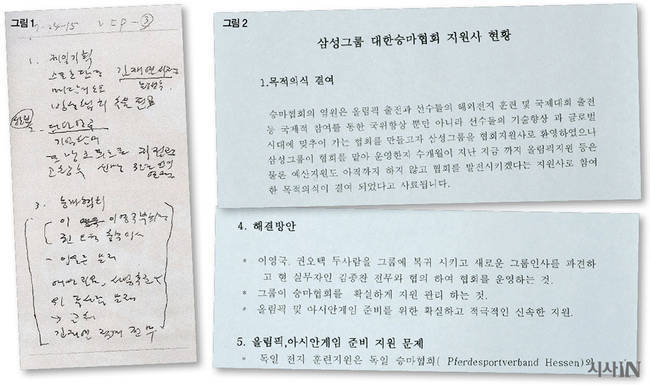 그림1
7-24-15 VIP-③
1. 제일기획
스포츠단장
김재열 사장
메달리스트
빙상협회 후원 필요
2.
3. 승마협회
이영국 부회장
권오택 총무이사
- 임원들 문제
예산지원, 사업추진
위 두사람 문제
→ 교체
김재열 직계 전무
그림2
삼성그룹 대한승마협회 지원사 현황
1.목적의식 결여
승마협회의 염원은 올림픽 출전과 선수들의 해외전지 훈련 및 국제대회 출전
등 국제적 참여를 통한 국위향상 뿐만 아니라 선수들의 기술향상 과 글로벌
시대에 맞추어 가는 협회를 만들고자 삼성그룹을 협회지원사로 환영하였으나
삼성그룹이 협회를 맡아 운영한지 수개월이 지난 지금 까지 올림픽지원 등은
물론 예산지원도 아직까지 하지 않고 협회를 발전시키겠다는 지원사로 참여
한 목적의식이 결여 되었다고 사료됩니다.
4. 해결방안
* 이영국, 권오택 두사람을 그룹에 복귀 시키고 새로운 그룹인사를 파견하
고 현 실무자인 김종찬 전무와 협의 하여 협회를 운영하는 것.
* 그룹이 승마협회를 확실하게 지원 관리 하는 것.
* 올림픽 및 아시안게임 준비를 위한 확실하고 적극적인 신속한 지원.
5. 올림픽,아시안게임 준비 지원 문제
* 독일 전지 훈련지원은 독일 승마협회( Pferdesportverband Hessen)와
시사IN